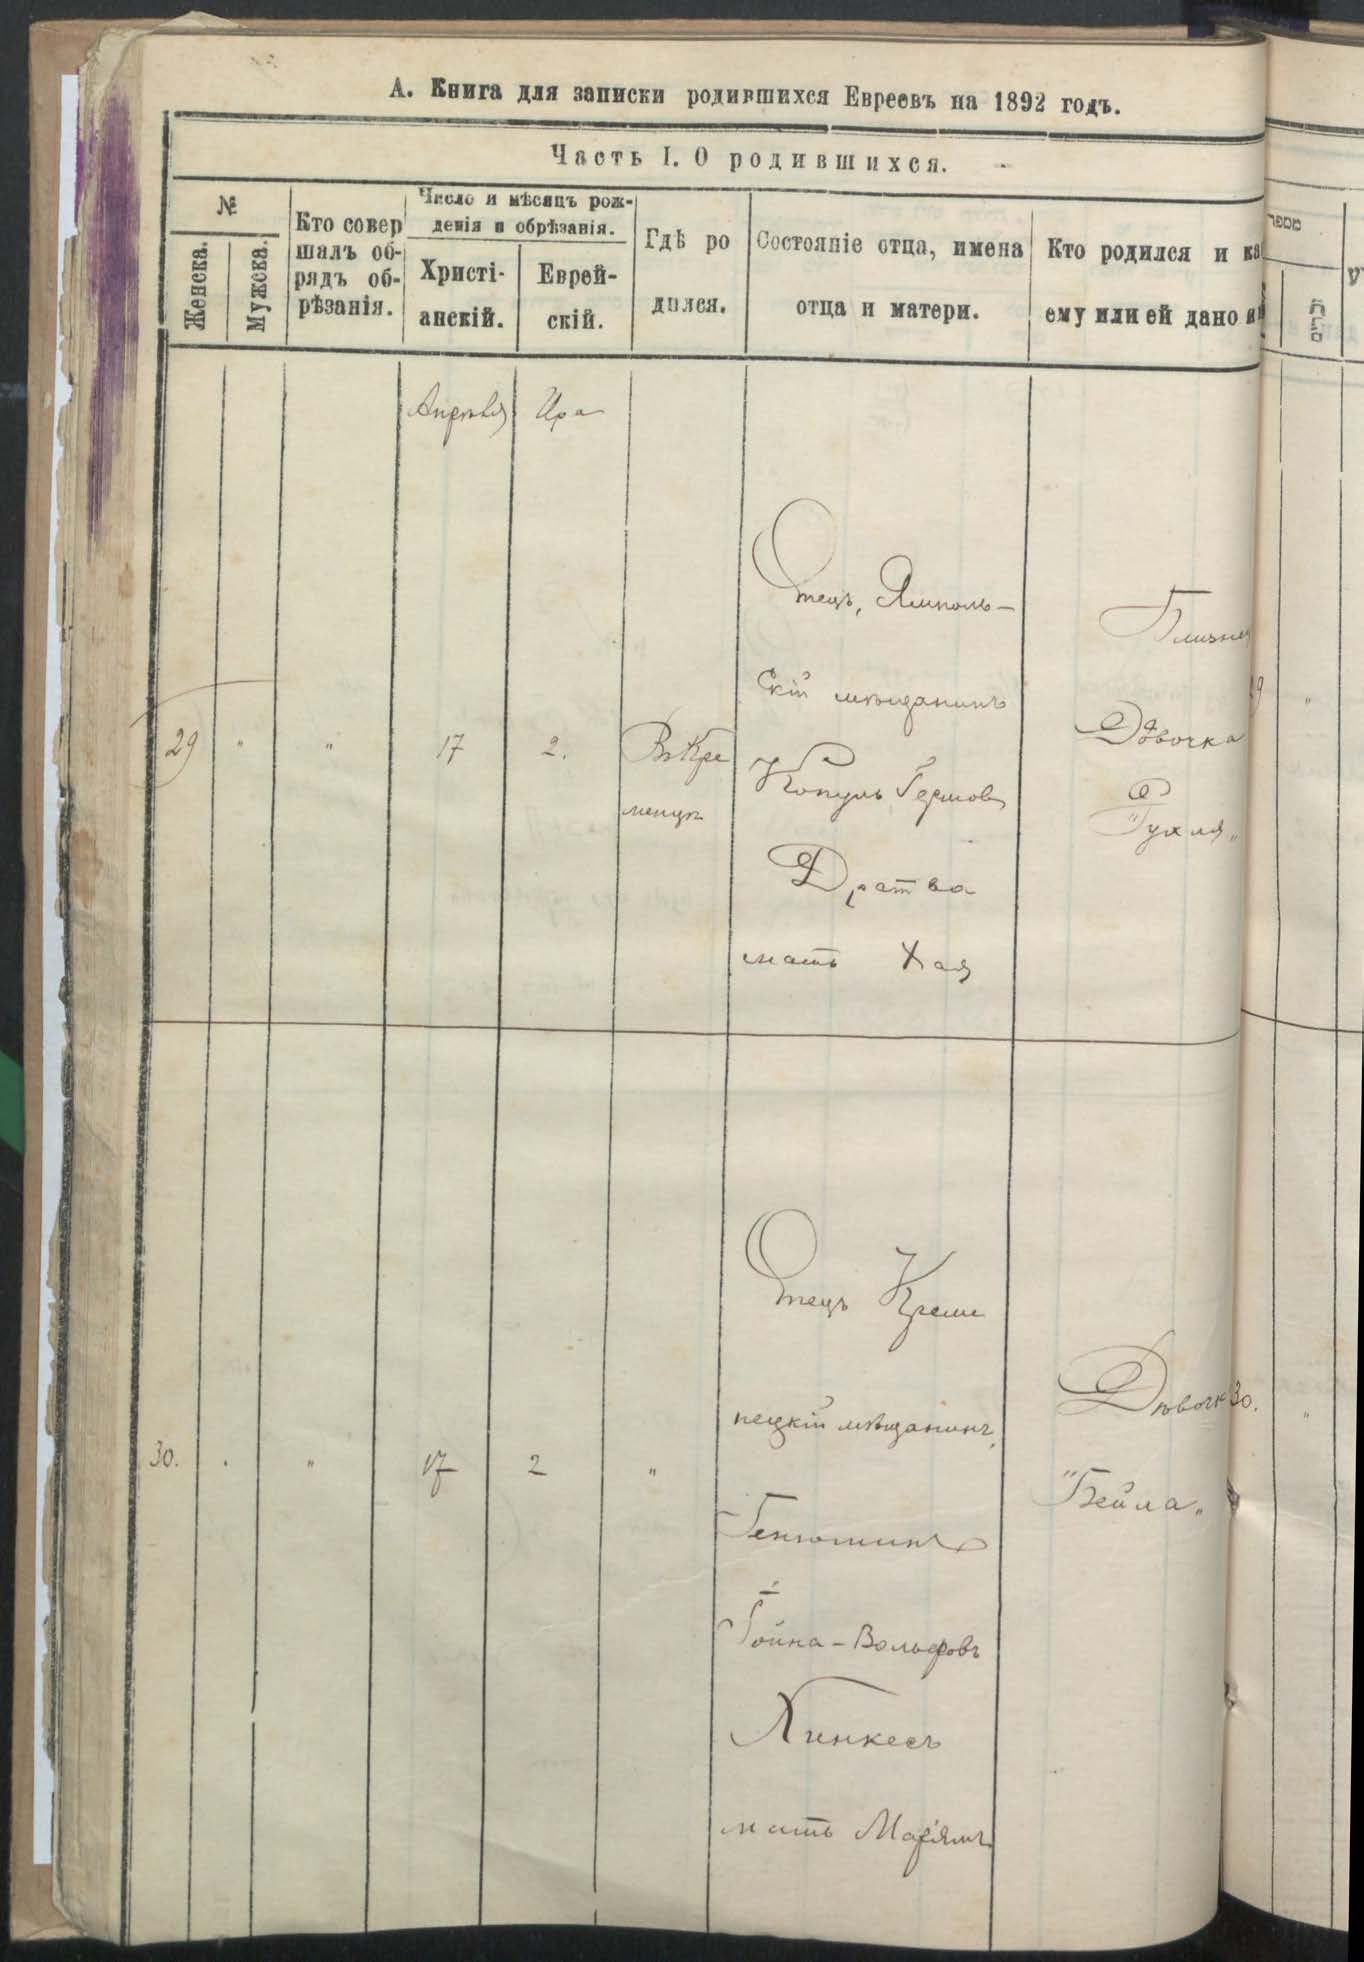 А. Книга для записки родившихся Евреевъ на 1892 годъ.
Часть I. О родившихся.
№
Женска.
Мужска.
Кто совер
шалъ об-
рядъ об-
рѣзанія.
Число и мѣсяцъ рож-
денія и обрѣзанія.
Христі-
анскій.
Еврей-
скій.
Гдѣ ро
дился.
Состояніе отца, имена
отца и матери.
Кто родился и ка
ему или ей дано и
מספר
זכרים
Апрѣля
Ира
29
"
"
17
2.
Въ Кре
менцѣ
Отецъ, Ямполь-
скій мѣщанинъ
Копуль Гермов
Дратва
мать Хая
Близнец
Дѣвочка
"Рухля"
30.
"
17
2
"
Отецъ Креме
нецкій мѣщанинъ,
Гойна-Вольфовъ
Пинкесъ
мать Маріямъ
Дѣвочк
"Бейла"
30.
"